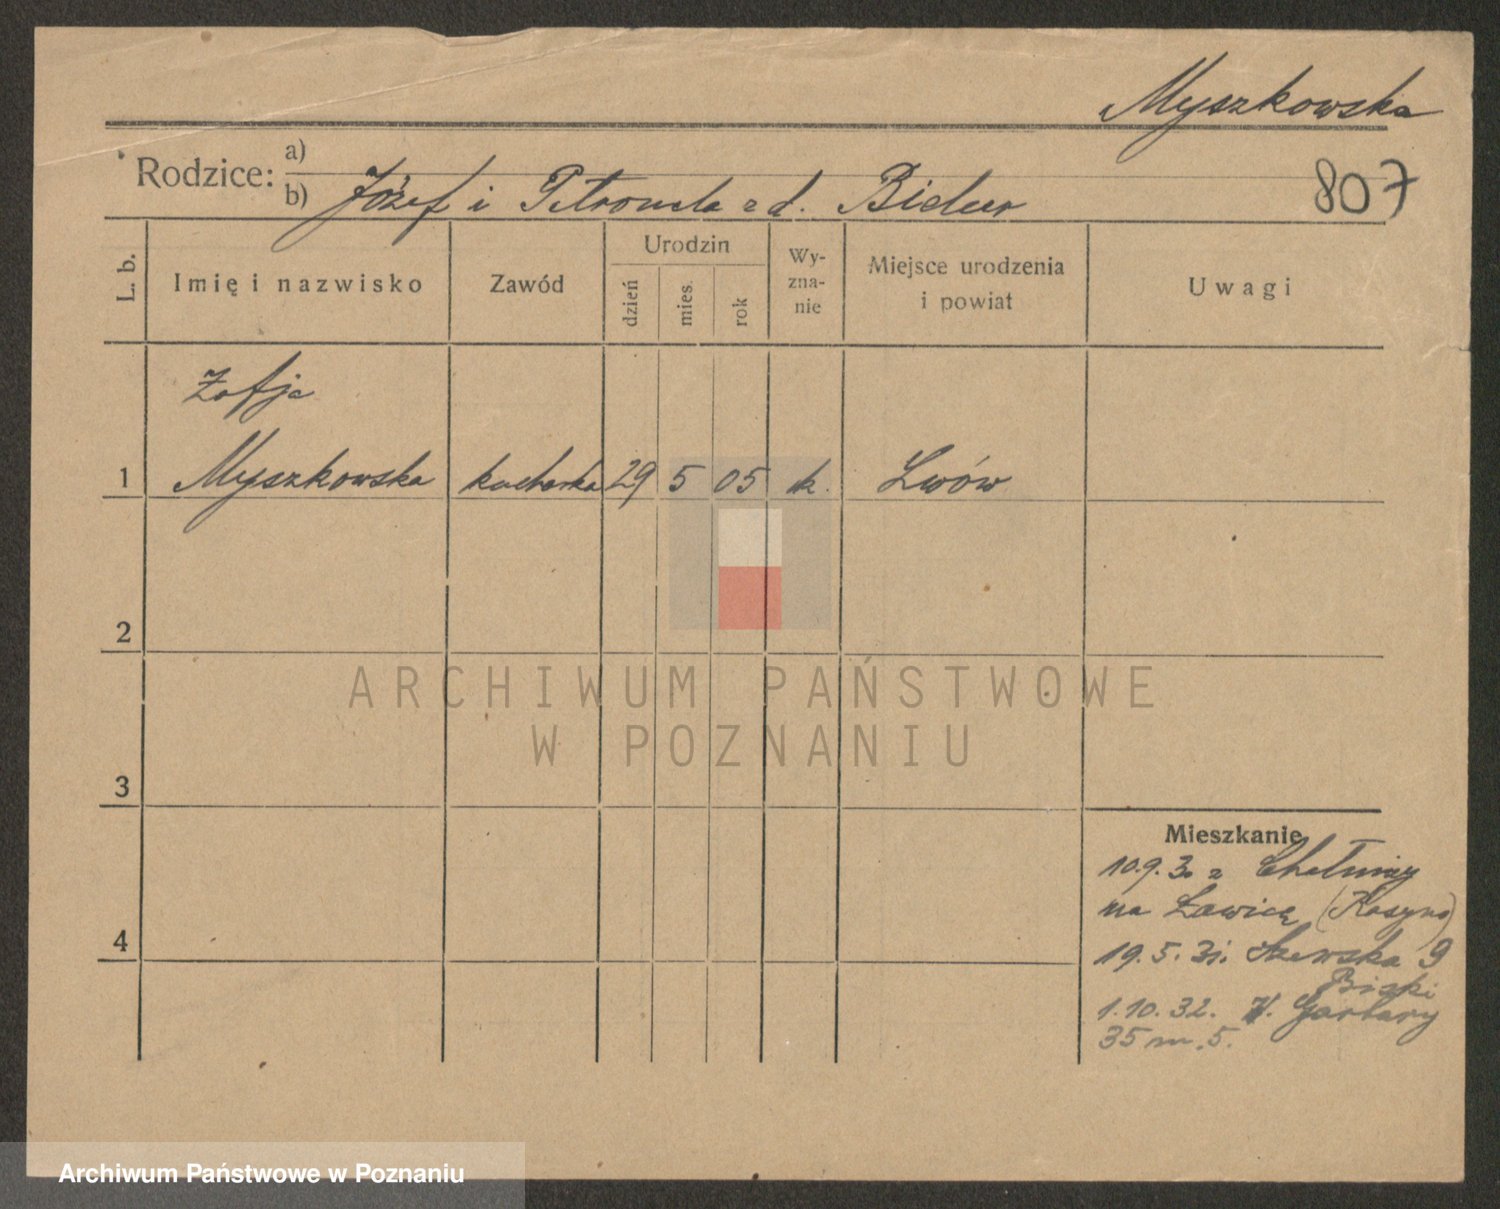 Myszkowska
Rodzice: a)
b) Józef i Petronela z d. Bider
807
L. b.
Imię i nazwisko
Zawód
Urodzin
dzień
mies.
rok
Wy-
zna-
nie
Miejsce urodzenia
i powiat
Uwagi
Zofja
1 Myszkowska kucharka 29 5 05 k. Lwów
2
ARCHIWUM PAŃSTWOWE
W POZNANIU
3
Mieszkanie
10.9.30 z Chełmży
na Ławicę (Kasyno)
4
19.5.31. Szewska 9
1.10.32. Garbary
35 m. 5.
Archiwum Państwowe w Poznaniu